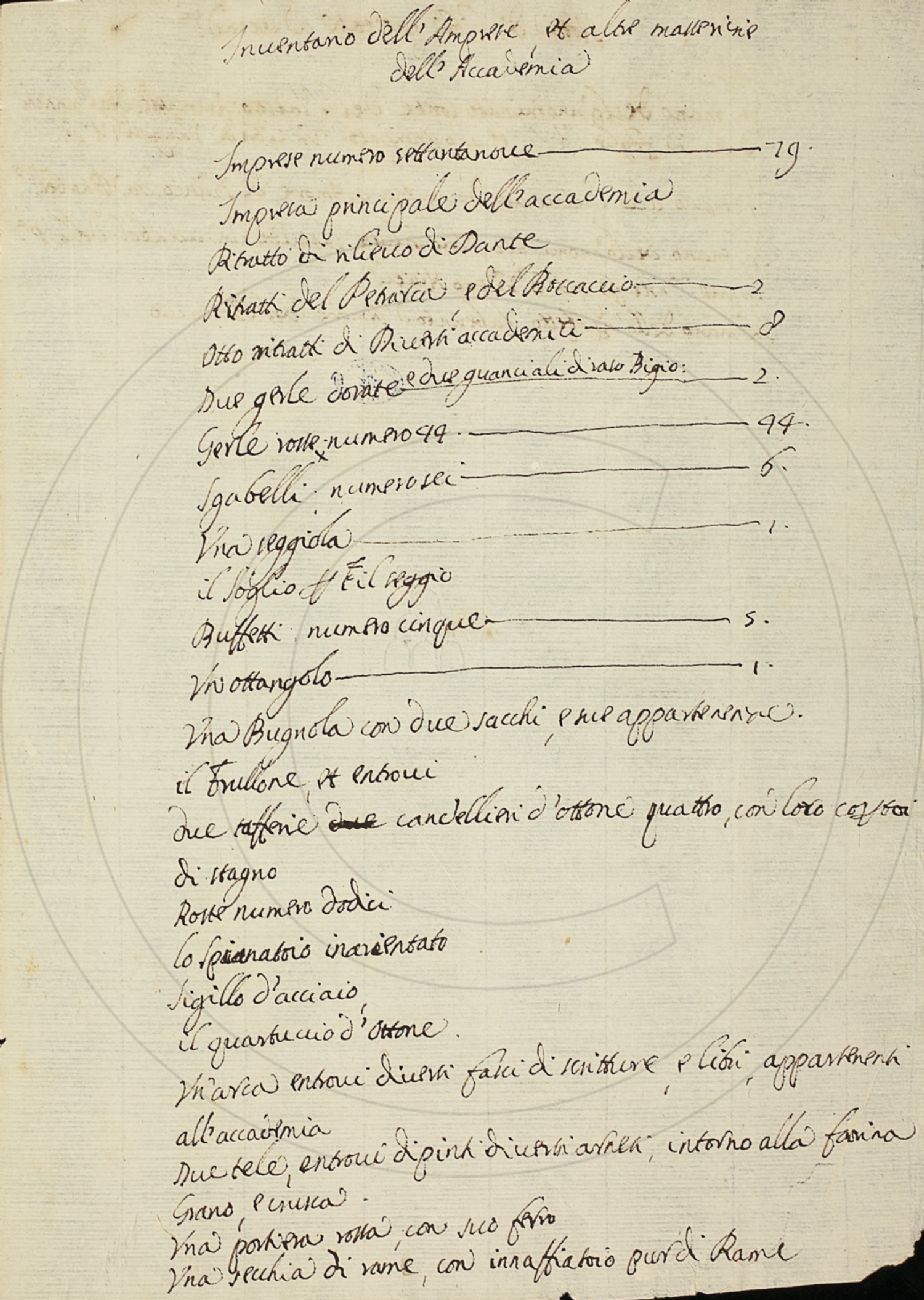 Inventario dell'Imprese, et altre masserizie
dell'Accademia
Imprese numero settantanoue 79.
Impresa principale dell'accademia
Ritratto di rilieuo di Dante
Ritratti del Petrarca, e del Boccaccio 2
Otto ritratti di Diuersi accademici 8
Due gerle dorate e due guanciali di raso Bigio: 2.
Gerle rosse numero 44. 44.
Sgabelli numero sei 6.
Vna seggiola 1.
il soglio il seggio
Buffetti numero cinque 5.
Vn ottangolo 1.
Vna Bugnola con due sacchi, e sue appartenenze.
il Frullone, et entroui
due tafferie due candellieri d'ottone quattro, con loro
di stagno
Roste numero dodici
lo spianatoio inarientato
sigillo d'acciaio,
il quartuccio d'Ottone.
Vn'arca entroui diuersi fasci di scritture, e libri, appartenenti
all'accademia
Due tele, entroui dipinti diuersi arnesi, intorno alla farina
Grano, e crusca.
Vna portiera rossa, con suo ferro
Vna secchia di rame, con innaffiatoio pur di Rame